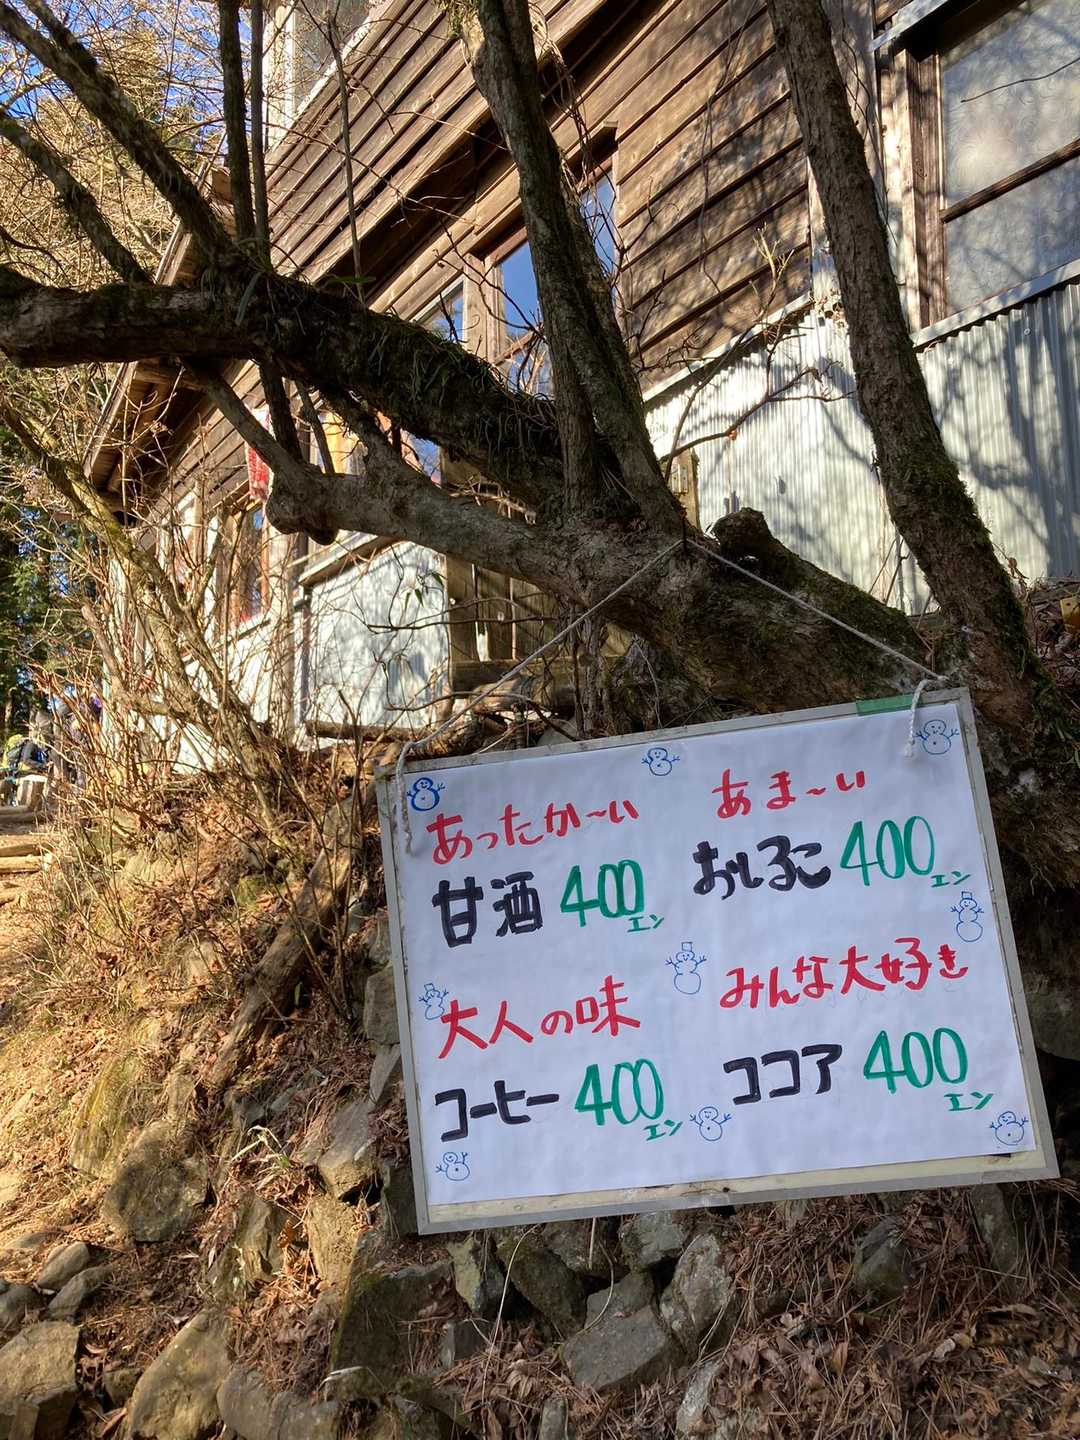 あったか～い
甘酒 400エン
あま～い
おしるこ 400エン
大人の味
コーヒー 400エン
みんな大好き
ココア 400エン